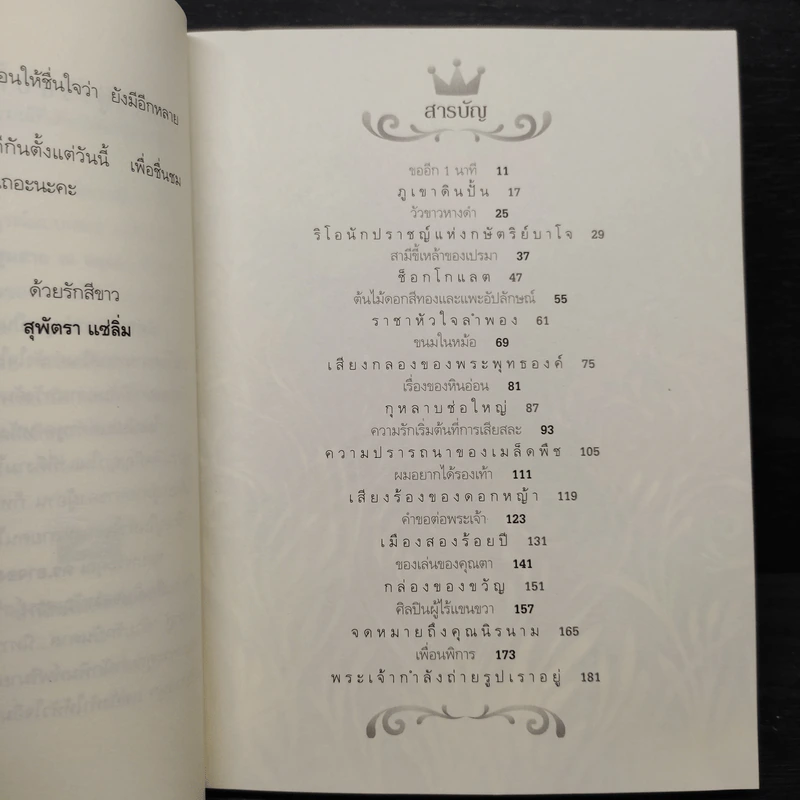 อนให้ชื่นใจว่า ยังมีอีกหลาย
กันตั้งแต่วันนี้ เพื่อชื่นชม
เถอะนะคะ
ด้วยรักสีขาว
สุพัตรา แซ่ลิ่ม
สารบัญ
ขออีก 1 นาที 11
ภูเขาดินปั้น 17
วัวขาวหางดำ 25
ริโอนักปราชญ์แห่งกษัตริย์บาโจ 29
สามีขี้เหล้าของเปรมา 37
ช็อกโกแลต 47
ต้นไม้ดอกสีทองและแพะอัปลักษณ์ 55
ราชาหัวใจลำพอง 61
ขนมในหม้อ 69
เสียงกลองของพระพุทธองค์ 75
เรื่องของหินอ่อน 81
กุหลาบช่อใหญ่ 87
ความรักเริ่มต้นที่การเสียสละ 93
ความปรารถนาของเมล็ดพืช 105
ผมอยากได้รองเท้า 111
เสียงร้องของดอกหญ้า 119
คำขอต่อพระเจ้า 123
เมืองสองร้อยปี 131
ของเล่นของคุณตา 141
กล่องของขวัญ 151
ศิลปินผู้ไร้แขนขวา 157
จดหมายถึงคุณนิรนาม 165
เพื่อนพิการ 173
พระเจ้ากำลังถ่ายรูปเราอยู่ 181